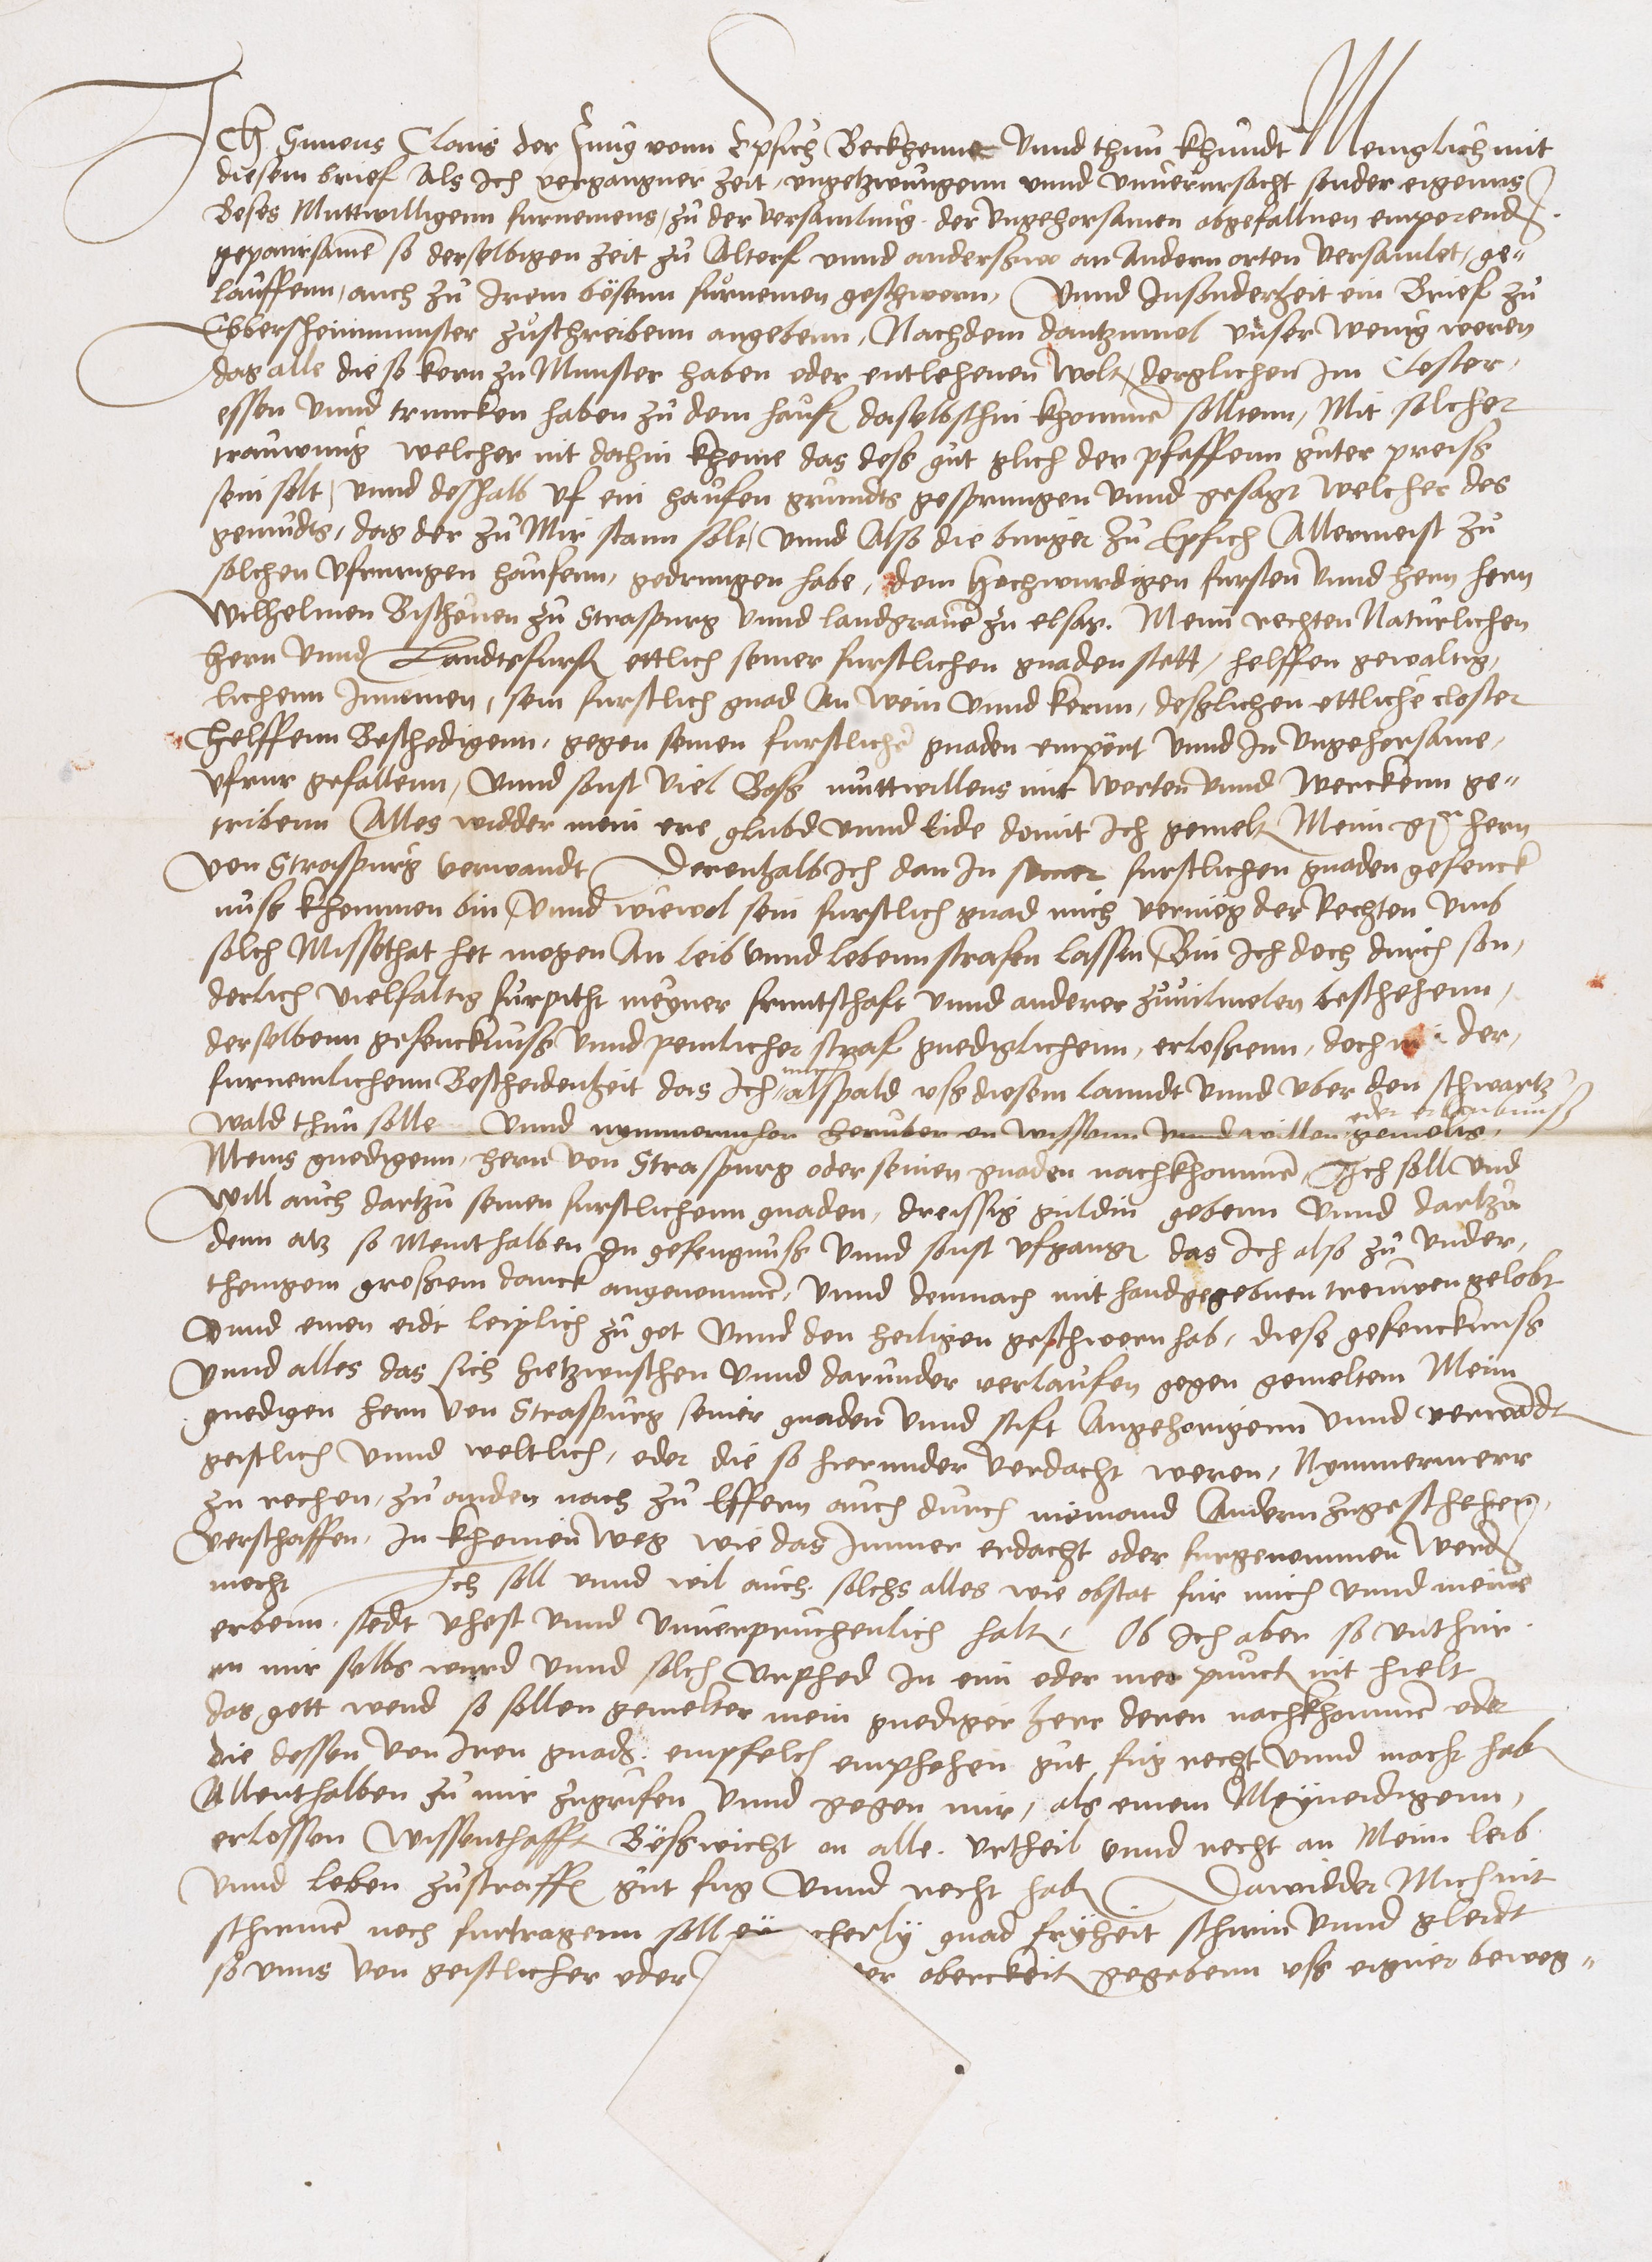 Ich Simens Clauis der Jung vonn Epfich Beckhenne Vnnd thun khundt Meniglich mit
diesem brief Als Ich vergangner zeit, vngetzwungenn vnnd vnuerursacht sonder eigenns
Beses Muttwilligenn furnemens, zu der versamlung der vngehorsamen abgefallnen emporend
gepaurschame so derselbigen zeit zu Altorf vnnd anderßwo an andern orten versamlet, ge-
lauffenn, auch zu Irem bösenn furnemen geschworn, Vnnd Insonderheit ein Brief zu
Ebbersheimmunster zuschreibenn angebenn, Nachdem dantzumol vnser wenig weren
das alle die so korn zu Munster haben oder entlehenen wolt, derglichen Im Closter,
essen vnnd truncken haben zu dem hauf doselbsthin khomme solltenn, Mit solcher
trauwung welcher nit dohin kheme das deß gut glich der pfaffenn guter preiß
sein solt, vnnd deßhalb vf ein haufen grundts gesprungen vnnd gesagt welcher des
gemudts, das der zu Mir stann solt, vnnd Also die burger zu Epfich Allermeist zu
solchen vfrurigen haufenn, gedrungen habe, dem Hochwurdigen fursten vnnd hern hern
Wilhelmen Bischouen zu Straspurg vnnd landgraue zu elsas. Meinn rechten Naturlichen
hern vnnd Landtsfurst ettlich seiner furstlichen gnaden stett, helffen gewaltig,
lichenn Innemen, sein furstlich gnad An wein vnnd kornn, deßglichen ettliche closter
Helffenn Beschedigenn, gegen seinen furstliche gnaden empört vnnd In vngehorsame,
vfrur gefallenn, Vnnd sonst viel Boß muttwillens mit worten vnnd werckenn ge-
tribenn Alles widder mein ere glubd vnnd Eide domit Ich gemelt Meim g. hern
von Straspurg verwandt Derenhalb Ich dan In seiner furstlichen gnaden gefenck
nuß khommen bin, Vnnd wiewol sein furstlich gnad mich vermög der Rechten vmb
solch Missethat het mogen An leib vnnd lebenn strafen lassen, Bin Ich doch durch son,
derlich vielfaltig furpitht meyner fruntschaft vnnd anderer zuuilmolen beschehenn,
derselbenn gefencknuß vnnd peinlicher straf gnediglichenn, erlossenn, doch der,
furnemlichenn Bescheidenheit das Ich mich alspald vß diesem lanndt vnnd vber den schwartz
wald thun solle Vnnd nymmermher heruber on wissenn vnnd willen oder erlaubnuß gemelts,
Meins gnedigenn, hern von Straspurg oder seinen gnaden nachkhomme, Ich soll vnd
will auch dartzu seinen furstlichenn gnaden, dreissig guldin gebenn vnnd dartzu
denn atz so Meinthalben In gefengnuß vnnd sonst vfgangen das Ich also zu vnder,
thenigem grossem danck angenomme, Vnnd demnach mit handgegebnen treuwen gelobt
Vnnd einen eidt leiplich zu got vnnd den heiligen geschworn hab, diese gefencknuß
Vnnd alles das sich hietzwuschen vnnd darunder verlaufen gegen gemeltem Meim
gnedigen hern von Straspurg seiner gnaden vnnd stift Angehorigenn vnnd verwandt
geistlich vnnd weltlich, oder die so hierunder verdacht weren, Nymmermerr
zu rechen, zu anden noch zu Effern auch durch niemand Andern zugeschehen,
verschaffen, In kheinen weg wie das Immer erdacht oder furgenommen werd
mocht Ich soll vnnd wil auch solchs alles wie obstat fur mich vnnd meine
erbenn stedt vhest vnnd vnuerpruchenlich halt, Ob Ich aber so vnthur
an mir selbs wurd vnnd solch Vrphed In eim oder mer punct nit hielt
das gott wend so sollen gemelter mein gnediger herr deren nachkhomme oder
die dessen von Iren gnad. empfelch emphehen gut fug recht vnnd macht hab
Allenthalben zu mir zugrifen vnnd gegen mir, als einem Meyneidigenn,
erlossen wissenthafft Bößwicht on alle vrtheil vnnd recht an Meim leib
Vnnd leben zustraffe gut fug Vnnd recht hab Dawidder Mich nit
schirme noch furtragenn soll cherly gnad fryheit schirm vnnd gleidt
so vnns von geistlicher oder er oberckeit gegebenn vß eigner beweg-